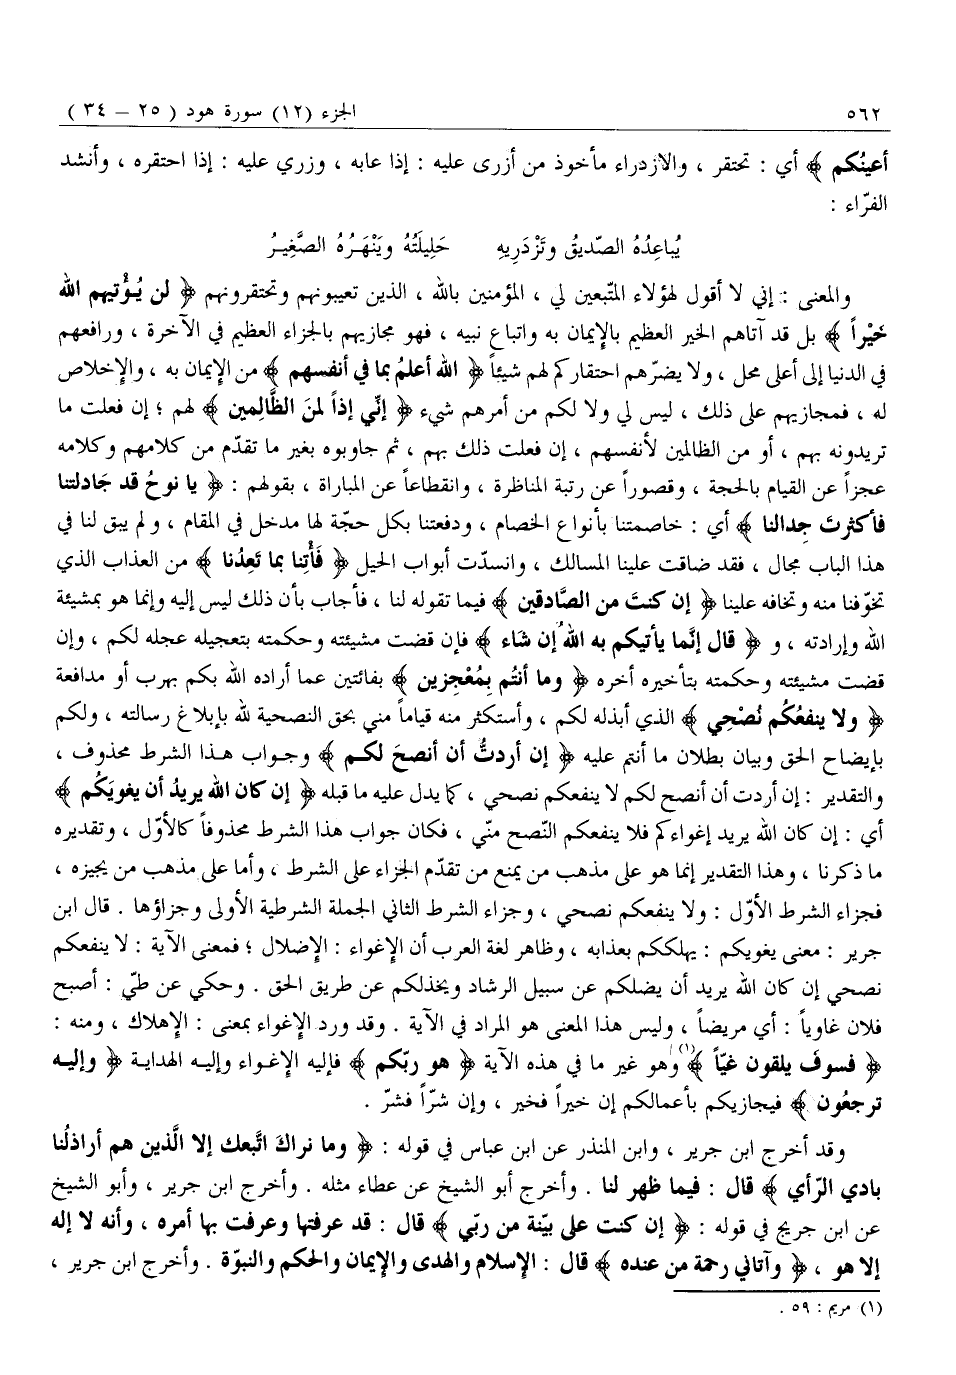 ٥٦٢
الجزء (١٢) سورة هود ( ٢٥ – ٣٤ )
أعينُكم ﴾ أي : تحتقر ، والازدراء مأخوذ من أزرى عليه : إذا عابه ، وزري عليه : إذا احتقره ، وأنشد
الفرّاء :
يُباعِدُهُ الصّديقُ وتَزْدَرِيهِ حَلِيلَتُهُ ويَنْهَـرُهُ الصَّغِيـرُ
والمعنى : إني لا أقول لهؤلاء المتّبعين لي ، المؤمنين بالله ، الذين تعيبونهم وتحتقرونهم ﴿ لن يُـؤْتيهم الله
خَيْراً ﴾ بل قد آتاهم الخير العظيم بالإيمان به واتباع نبيه ، فهو مجازيهم بالجزاء العظيم في الآخرة ، ورافعهم
في الدنيا إلى أعلى محل ، ولا يضرّهم احتقاركم لهم شيئاً ﴿ الله أعلمُ بما في أنفسهم ﴾ من الإيمان به ، والإخلاص
له ، فمجازيهم على ذلك ، ليس لي ولا لكم من أمرهم شيء ﴿ إنّي إذاً لمنَ الظَّالِمين ﴾ لهم ؛ إن فعلت ما
تريدونه بهم ، أو من الظالمين لأنفسهم ، إن فعلت ذلك بهم ، ثم جاوبوه بغير ما تقدّم من كلامهم وكلامه
عجزاً عن القيام بالحجة ، وقصوراً عن رتبة المناظرة ، وانقطاعاً عن المباراة ، بقولهم : ﴿ يا نوحُ قد جَادلتنا
فأكثرتَ جِدالنا ﴾ أي : خاصمتنا بأنواع الخصام ، ودفعتنا بكل حجّة لها مدخل في المقام ، ولم يبق لنا في
هذا الباب مجال ، فقد ضاقت علينا المسالك ، وانسدّت أبواب الحيل ﴿ فَأْتِنا بما تَعِدُنا ﴾ من العذاب الذي
تخوّفنا منه وتخافه علينا ﴿ إن كنتَ من الصَّادقين ﴾ فيما تقوله لنا ، فأجاب بأن ذلك ليس إليه وإنما هو بمشيئة
الله وإرادته ، و ﴿ قال إنَّما يأتيكم به اللهُ إن شَاء ﴾ فإن قضت مشيئته وحكمته بتعجيله عجله لكم ، وإن
قضت مشيئته وحكمته بتأخيره أخره ﴿ وما أنتُم بِمُعْجزين ﴾ بفائتين عما أراده الله بكم بهرب أو مدافعة
﴿ ولا ينفعُكُم نُصْحِي ﴾ الذي أبذله لكم ، وأستكثر منه قياماً مني بحق النصحية لله بإبلاغ رسالته ، ولكم
بإيضاح الحق وبيان بطلان ما أنتم عليه ﴿ إن أردتُّ أن أنصحَ لكـم ﴾ وجـواب هـذا الشرط محذوف ،
والتقدير : إن أردت أن أنصح لكم لا ينفعكم نصحي ، كما يدل عليه ما قبله ﴿ إن كان الله يريدُ أن يغويَكُم ﴾
أي : إن كان الله يريد إغواءكم فلا ينفعكم النّصح منّي ، فكان جواب هذا الشرط محذوفاً كالأوّل ، وتقديره
ما ذكرنا ، وهذا التقدير إنما هو على مذهب من يمنع من تقدّم الجزاء على الشرط ، وأما على مذهب من يجيزه ،
فجزاء الشرط الأوّل : ولا ينفعكم نصحي ، وجزاء الشرط الثاني الجملة الشرطية الأولى وجزاؤها . قال ابن
جرير : معنى يغويكم : يهلككم بعذابه ، وظاهر لغة العرب أن الإغواء : الإضلال ؛ فمعنى الآية : لا ينفعكم
نصحي إن كان الله يريد أن يضلكم عن سبيل الرشاد ويخذلكم عن طريق الحق . وحكي عن طيّ : أصبح
فلان غاوياً : أي مريضاً ، وليس هذا المعنى هو المراد في الآية . وقد ورد الإغواء بمعنى : الإهلاك ، ومنه :
﴿ فسوفَ يلقون غيّاً ﴾(١) وهو غير ما في هذه الآية ﴿ هو ربّكم ﴾ فإليه الإغـواء وإليـه الهداية ﴿ وإليـه
ترجعُون ﴾ فيجازيكم بأعمالكم إن خيراً فخير ، وإن شرّاً فشرّ .
وقد أخرج ابن جرير ، وابن المنذر عن ابن عباس في قوله : ﴿ وما نراكَ اتَّبعك إلا الَّذين هم أراذلُنا
بادي الرّأي ﴾ قال : فيما ظهر لنا . وأخرج أبو الشيخ عن عطاء مثله . وأخرج ابن جرير ، وأبو الشيخ
عن ابن جريج في قوله : ﴿ إن كنت على بيّنة من ربّي ﴾ قال : قد عرفتها وعرفت بها أمره ، وأنه لا إله
إلا هو ، ﴿ وآتاني رحمة من عنده ﴾ قال : الإسلام والهدى والإيمان والحكم والنبوّة . وأخرج ابن جرير ،
(١) مريم : ٥٩ .